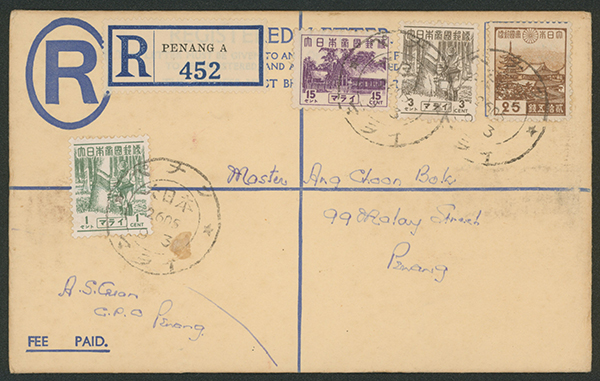 REGISTERED
R
R PENANG A
452
大日本帝國郵便
15 15
セント マライ CENT
大日本帝國郵便
3 3
セント マライ CENT
大日本帝國郵便
25 錢五拾貳
大日本帝國郵便
1 1
セント マライ CENT
ペナン
大日本
2605
3
マライ
Master Ang Choon Bok
99 Malay Street
Penang
G.P.O Penang.
FEE PAID.